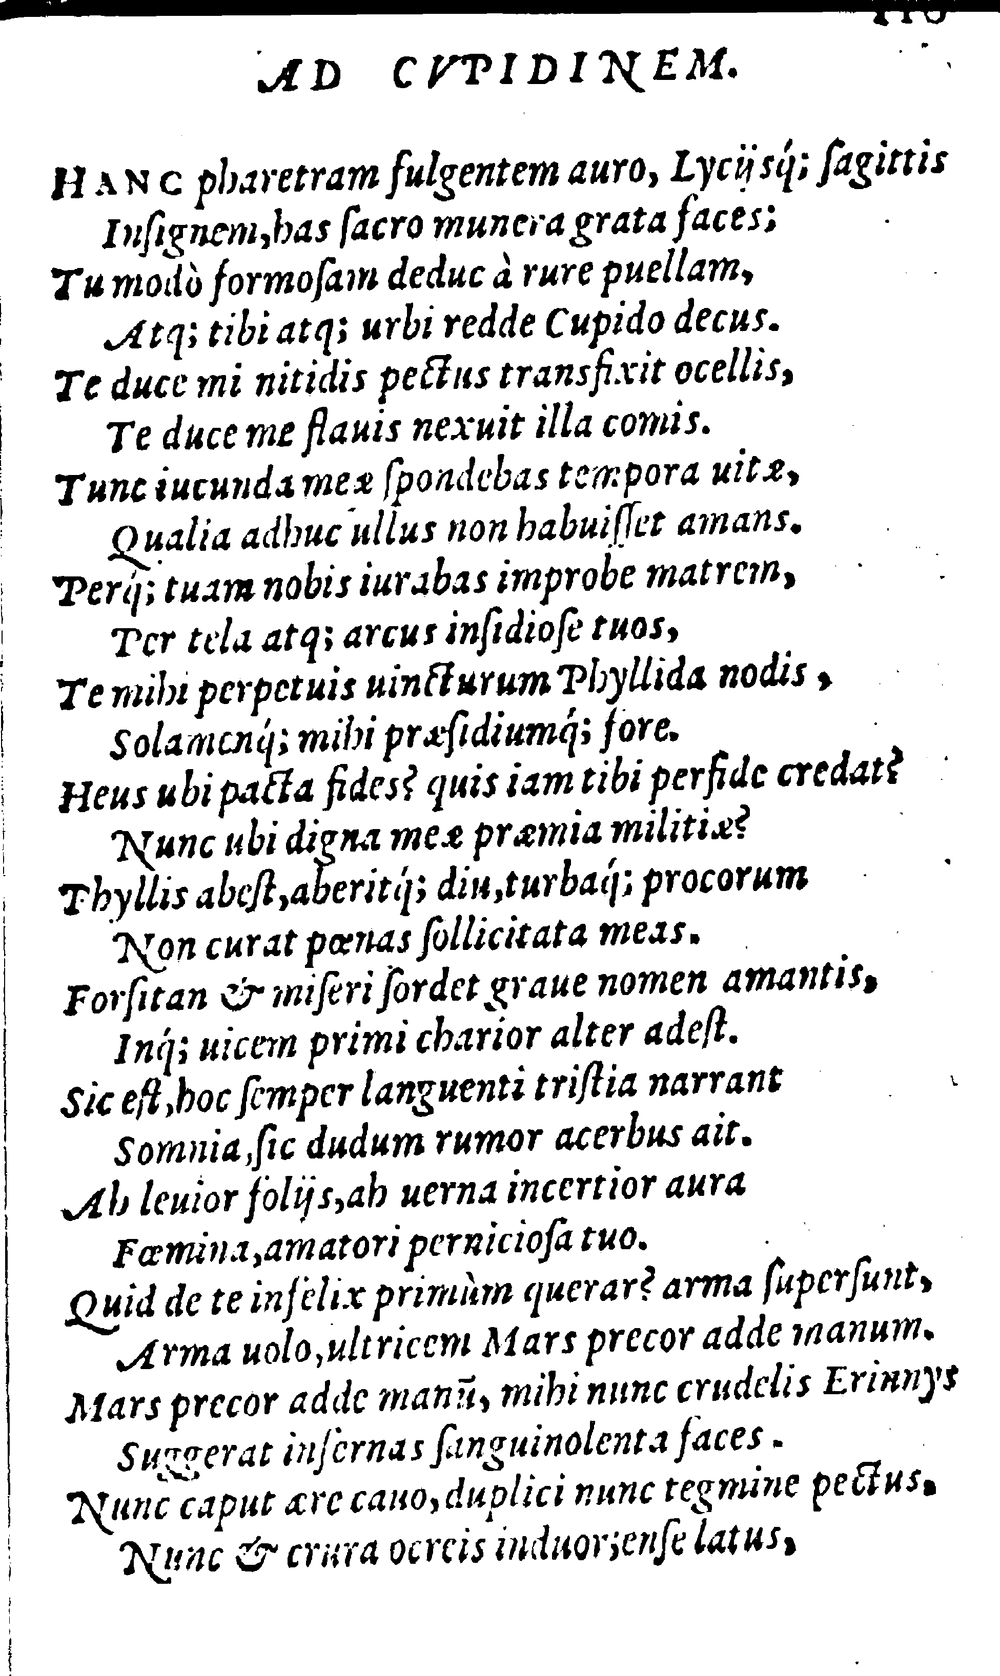 AD CVPIDINEM.
HANC pharetram fulgentem auro, Lycijsq́; ſagittis
Inſignem, has ſacro munera grata faces;
Tu modò formoſam deduc à rure puellam,
Atq; tibi atq; urbi redde Cupido decus.
Te duce mi nitidis pectus transfixit ocellis,
Te duce me flauis nexuit illa comis.
Tunc iucunda meæ ſpondebas tempora uitæ,
Qualia adhuc ullus non habuiſſet amans.
Perq́; tuam nobis iurabas improbe matrem,
Per tela atq; arcus inſidioſe tuos,
Te mihi perpetuis uincturum Phyllida nodis,
Solamenq́; mihi præſidiumq́; fore.
Heus ubi pacta fides? quis iam tibi perfide credat?
Nunc ubi digna meæ præmia militiæ?
Phyllis abeſt, aberitq́; diu, turbaq́; procorum
Non curat pœnas ſollicitata meas.
Forſitan & miſeri ſordet graue nomen amantis,
Inq́; uicem primi charior alter adeſt.
Sic eſt, hoc ſemper languenti triſtia narrant
Somnia, ſic dudum rumor acerbus ait.
Ah leuior folijs, ah uerna incertior aura
Fœmina, amatori pernicioſa tuo.
Quid de te infelix primùm querar? arma ſuperſunt,
Arma uolo, ultricem Mars precor adde manum.
Mars precor adde manū, mihi nunc crudelis Erinnys
Suggerat infernas ſanguinolenta faces.
Nunc caput ære cauo, duplici nunc tegmine pectus.
Nunc & crura ocreis induor; enſe latus,